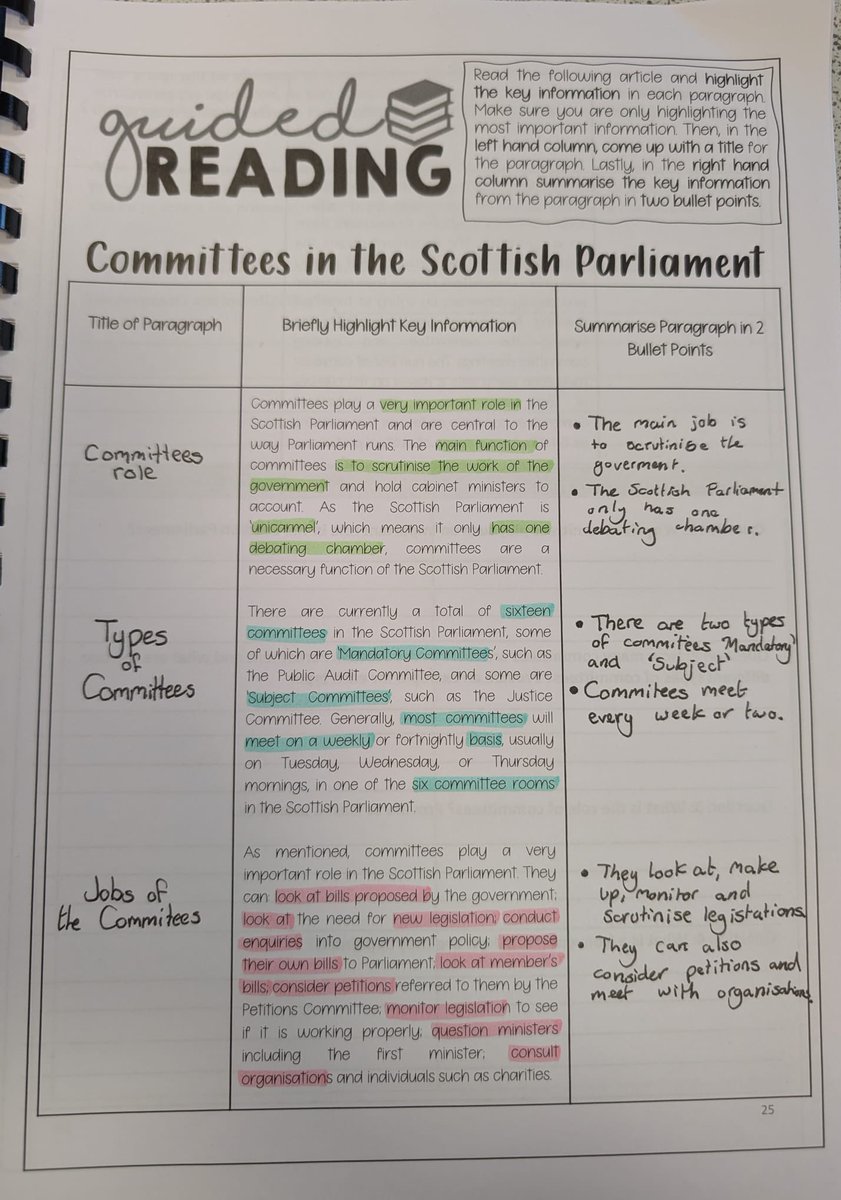 guided
READING
Read the following article and highlight
the key information in each paragraph.
Make sure you are only highlighting the
most important information. Then, in the
left hand column, come up with a title for
the paragraph. Lastly, in the right hand
column summarise the key information
from the paragraph in two bullet points.
Committees in the Scottish Parliament
Title of Paragraph
Briefly Highlight Key Information
Summarise Paragraph in 2
Bullet Points
Committees
role
Committees play a very important role in the
Scottish Parliament and are central to the
way Parliament runs. The main function of
committees is to scrutinise the work of the
government and hold cabinet ministers to
account. As the Scottish Parliament is
'unicarmel', which means it only has one
debating chamber, committees are a
necessary function of the Scottish Parliament.
• The main job is
to scrutinise the
goverment.
• The Scottish Parliament
only has one
debating chamber.
Types
of
Committees
There are currently a total of sixteen
committees in the Scottish Parliament, some
of which are 'Mandatory Committees', such as
the Public Audit Committee, and some are
'Subject Committees', such as the Justice
Committee. Generally, most committees will
meet on a weekly or fortnightly basis, usually
on Tuesday, Wednesday, or Thursday
mornings, in one of the six committee rooms
in the Scottish Parliament.
• There are two types
of commitees 'Mandatory'
and 'Subject'
• Commitees meet
every week or two.
Jobs of
the Commitees
As mentioned, committees play a very
important role in the Scottish Parliament. They
can look at bills proposed by the government;
look at the need for new legislation; conduct
enquiries into government policy; propose
their own bills to Parliament; look at member's
bills; consider petitions referred to them by the
Petitions Committee; monitor legislation to see
if it is working properly; question ministers
including the first minister; consult
organisations and individuals such as charities.
• They look at, make
up, monitor and
scrutinise legistations
• They can also
consider petitions and
meet with organisations.
25